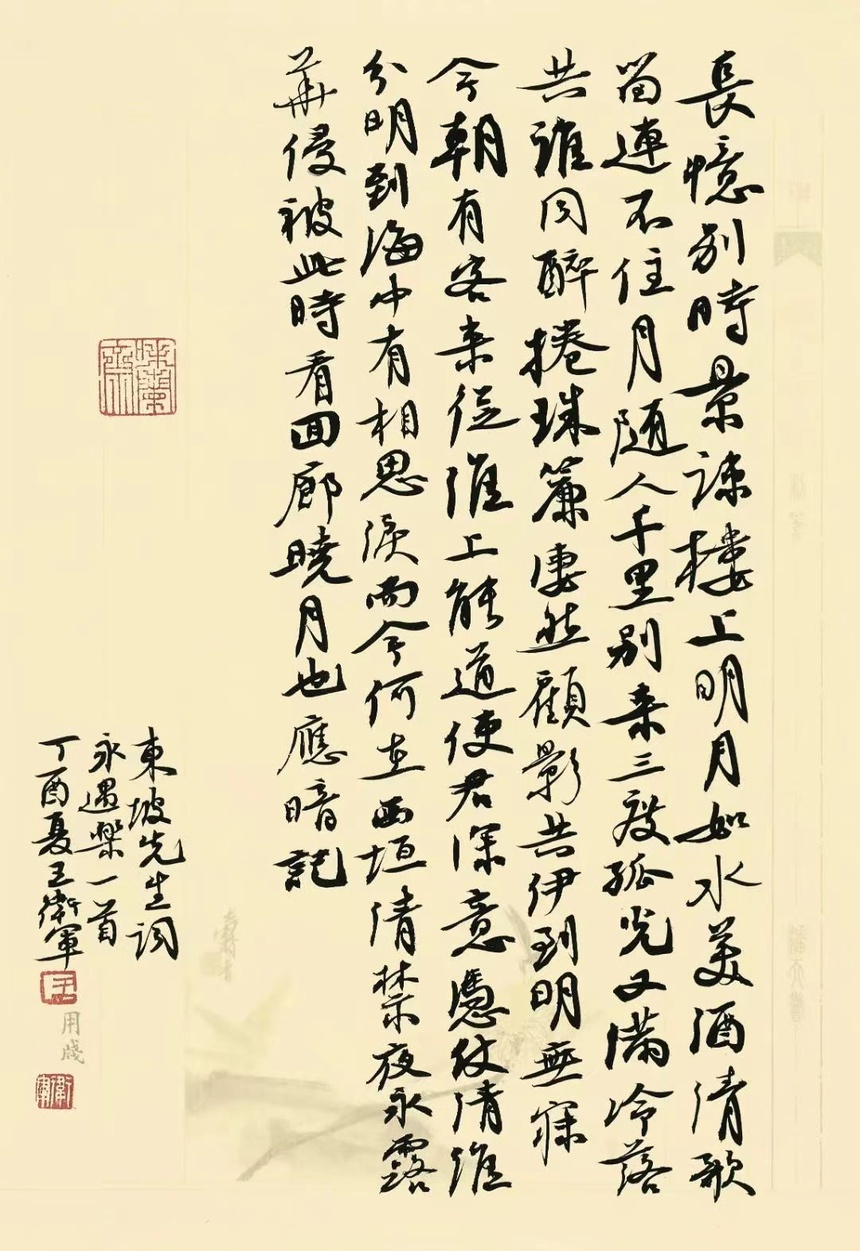 長憶別時景疎樓上明月如水美酒清歌
留連不住月隨人千里別来三度孤光又滿冷落
共誰同醉捲珠簾凄然顧影共伊到明無寐
今朝有客来從濉上能道使君深意憑仗清淮
分明到海中有相思淚而今何在西垣清禁夜永露
華侵被此時看回廊曉月也應暗記
東坡先生詞
永遇樂一首
丁酉夏王衛軍
用牋